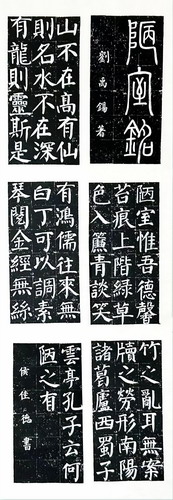 陋室銘
劉禹錫著
山不在高有仙
則名水不在深
有龍則靈斯是
陋室惟吾德馨
苔痕上階綠草
色入簾青談笑
有鴻儒往來無
白丁可以調素
琴閱金經無絲
竹之亂耳無案
牘之勞形南陽
諸葛廬西蜀子
雲亭孔子云何
陋之有
侯佳德書